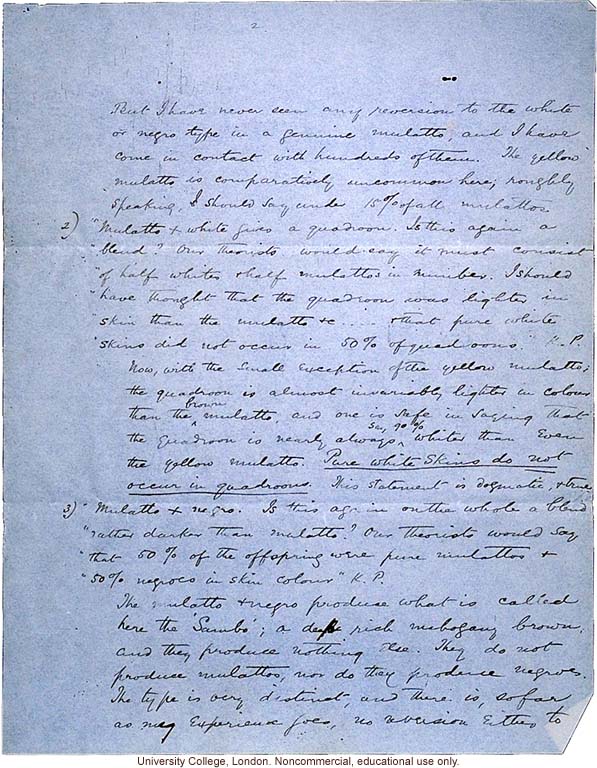 2
But I have never seen any reversion to the white
or negro type in a genuine mulatto and I have
come in contact with hundreds of them. The yellow
mulatto is comparatively uncommon here; roughly
speaking, I should say under 15% of all mulattos
2) "Mulatto + white gives a quadroon. Is this again a
blend? Our theorists would say it must consist
"of half whites + half mulattos in number. I should
"have thought that the quadroon was lighter in
"skin than the mulatto &c..... + that pure white
"skins did not occur in 50% of quadroons" K.P.
Now, with the small exception of the yellow mulatto,
the quadroon is almost invariably lighter in colour
than the brown mulatto, and one is safe in saying that
the quadroon is nearly always, say, 90% whiter than even
the yellow mulatto. Pure white skins do not
occur in quadroons. This statement is dogmatic, + true
3) "Mulatto + negro. Is this again on the whole a blend
"rather darker than mulatto? Our theorists would say
"that 50% of the offspring were pure mulattos +
"50% negroes in skin colour" K.P.
The mulatto + negro produce what is called
here the 'Sambo'; a rich mahogany brown,
and they produce nothing else. They do not
produce mulattos, nor do they produce negroes.
The type is very distinct, and there is, so far
as my experience goes, no reversion either to
University College, London. Noncommercial, educational use only.